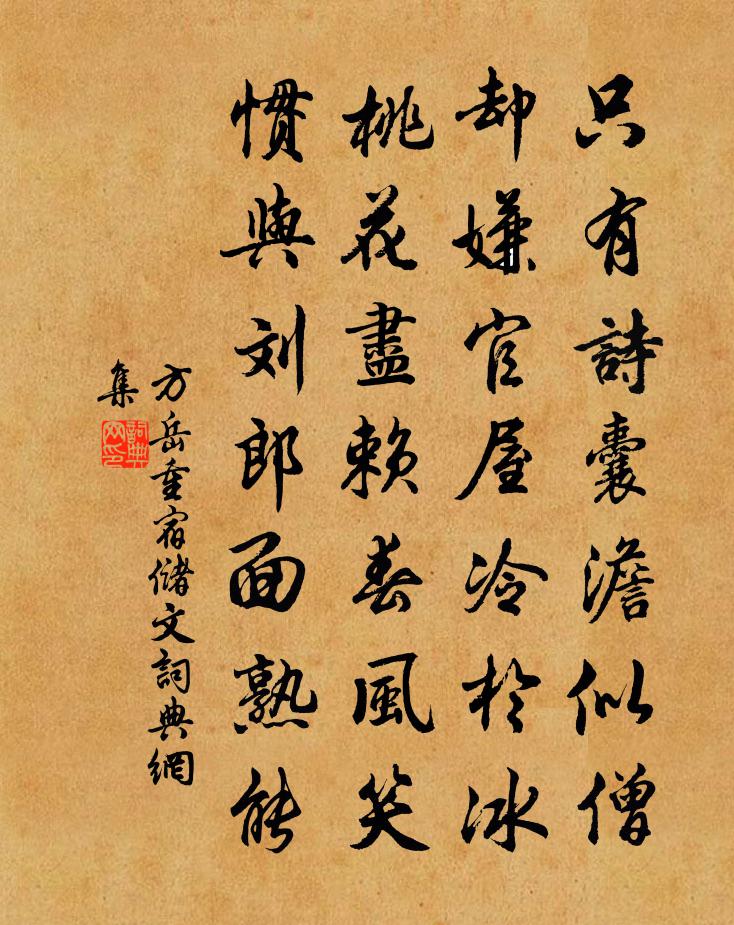 只有詩囊澹似僧
却嫌官屋冷於冰
桃花盡賴春風笑
慣與刘郎面熟能
方岳重宿儲文詞典網
集
詞典
网印